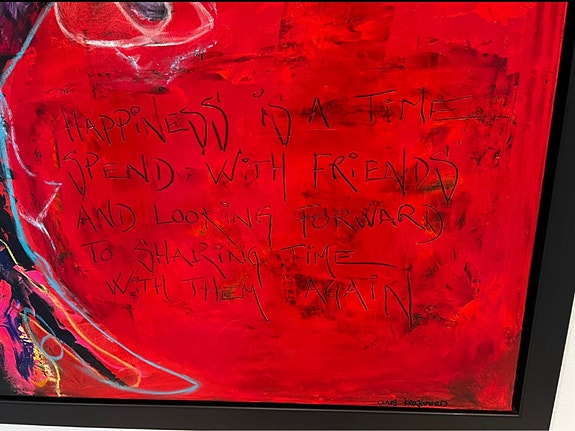 HAPPINESS IS A TIME
SPEND WITH FRIENDS
AND LOOKING FORWARD
TO SHARING TIME
WITH THEM AGAIN